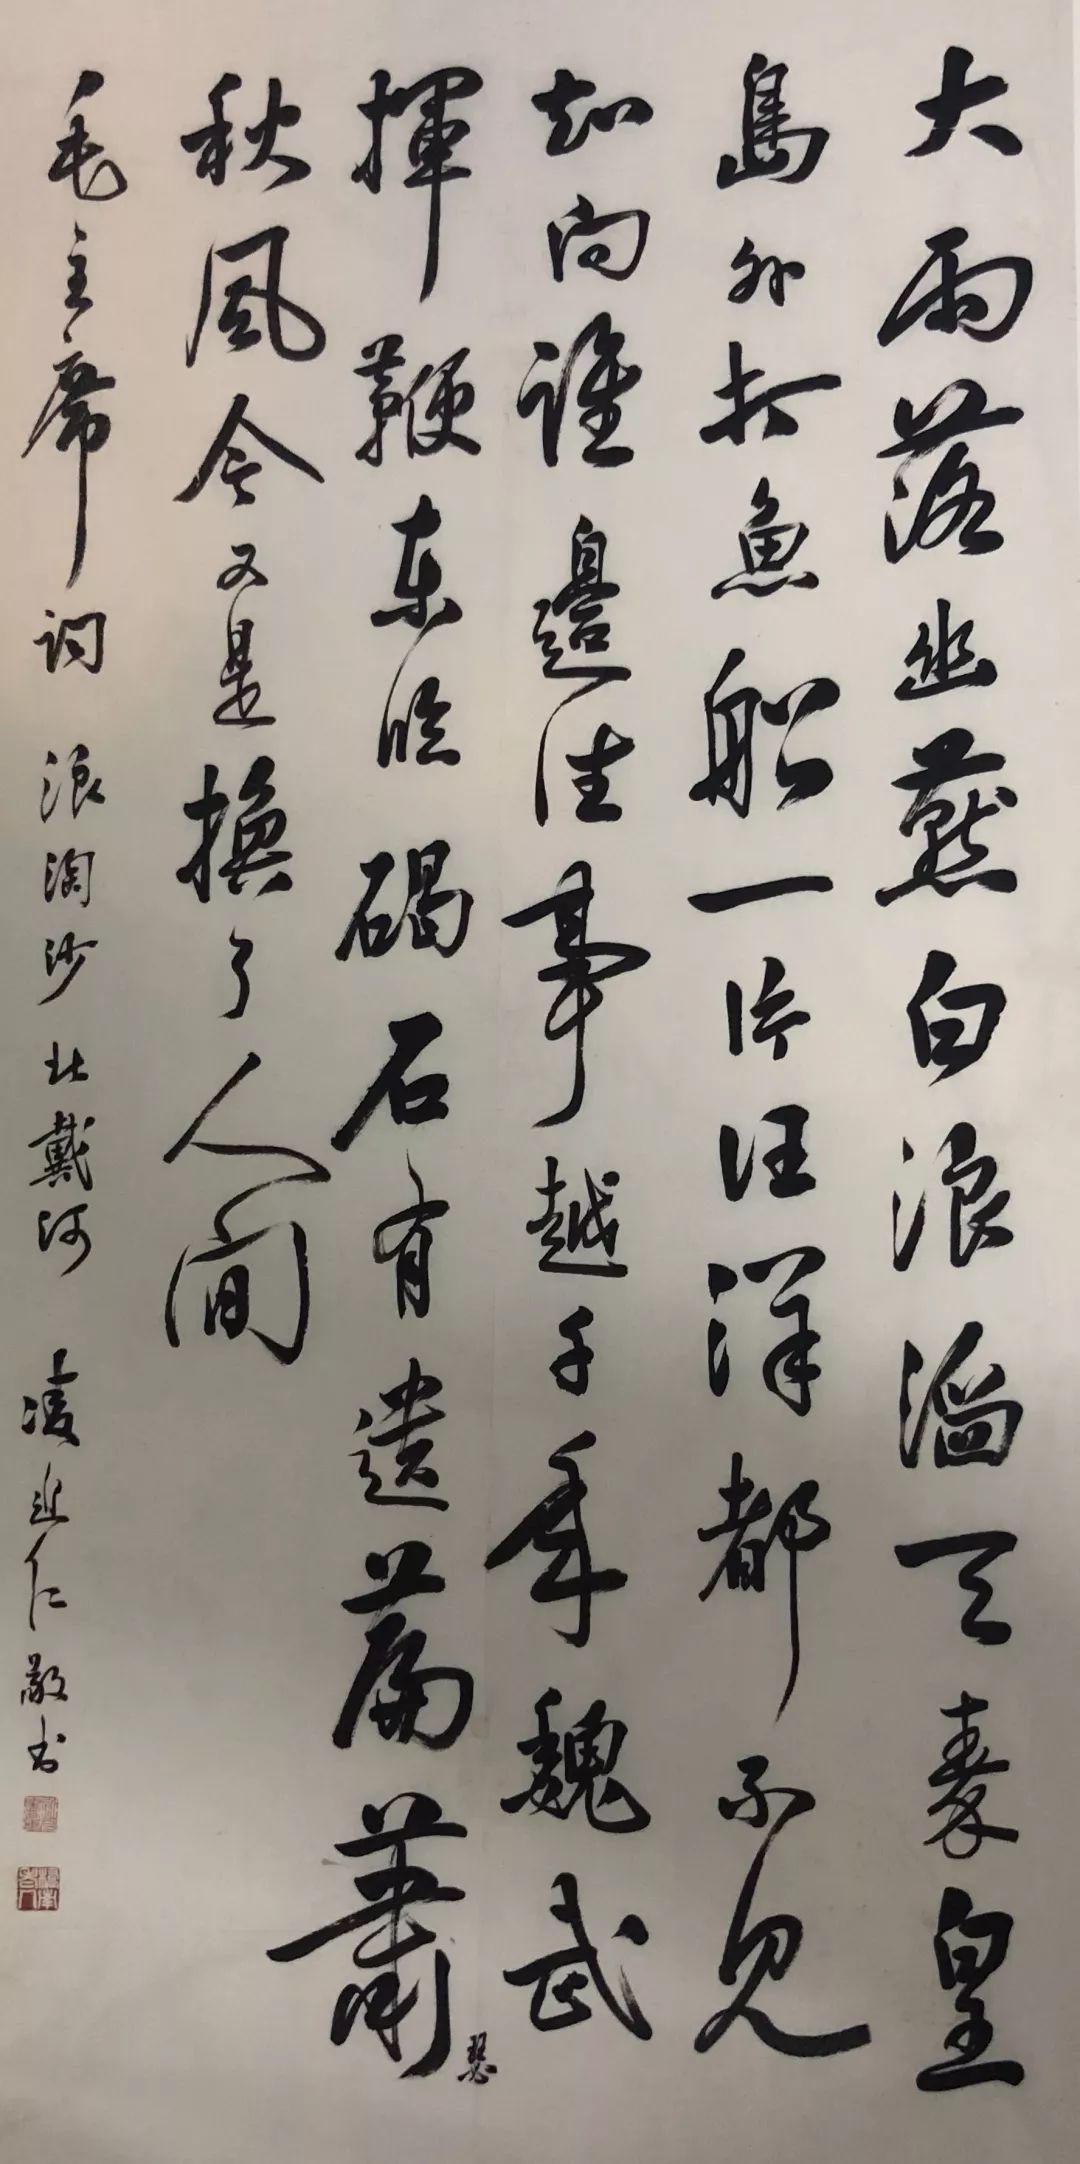 大雨落幽燕白浪滔天秦皇
島外打魚船一片汪洋都不見
知向誰邊往事越千年魏武
揮鞭東临碣石有遺篇蕭
瑟
秋風今又是換了人間
毛主席词 浪淘沙 北戴河 凌近仁敬书